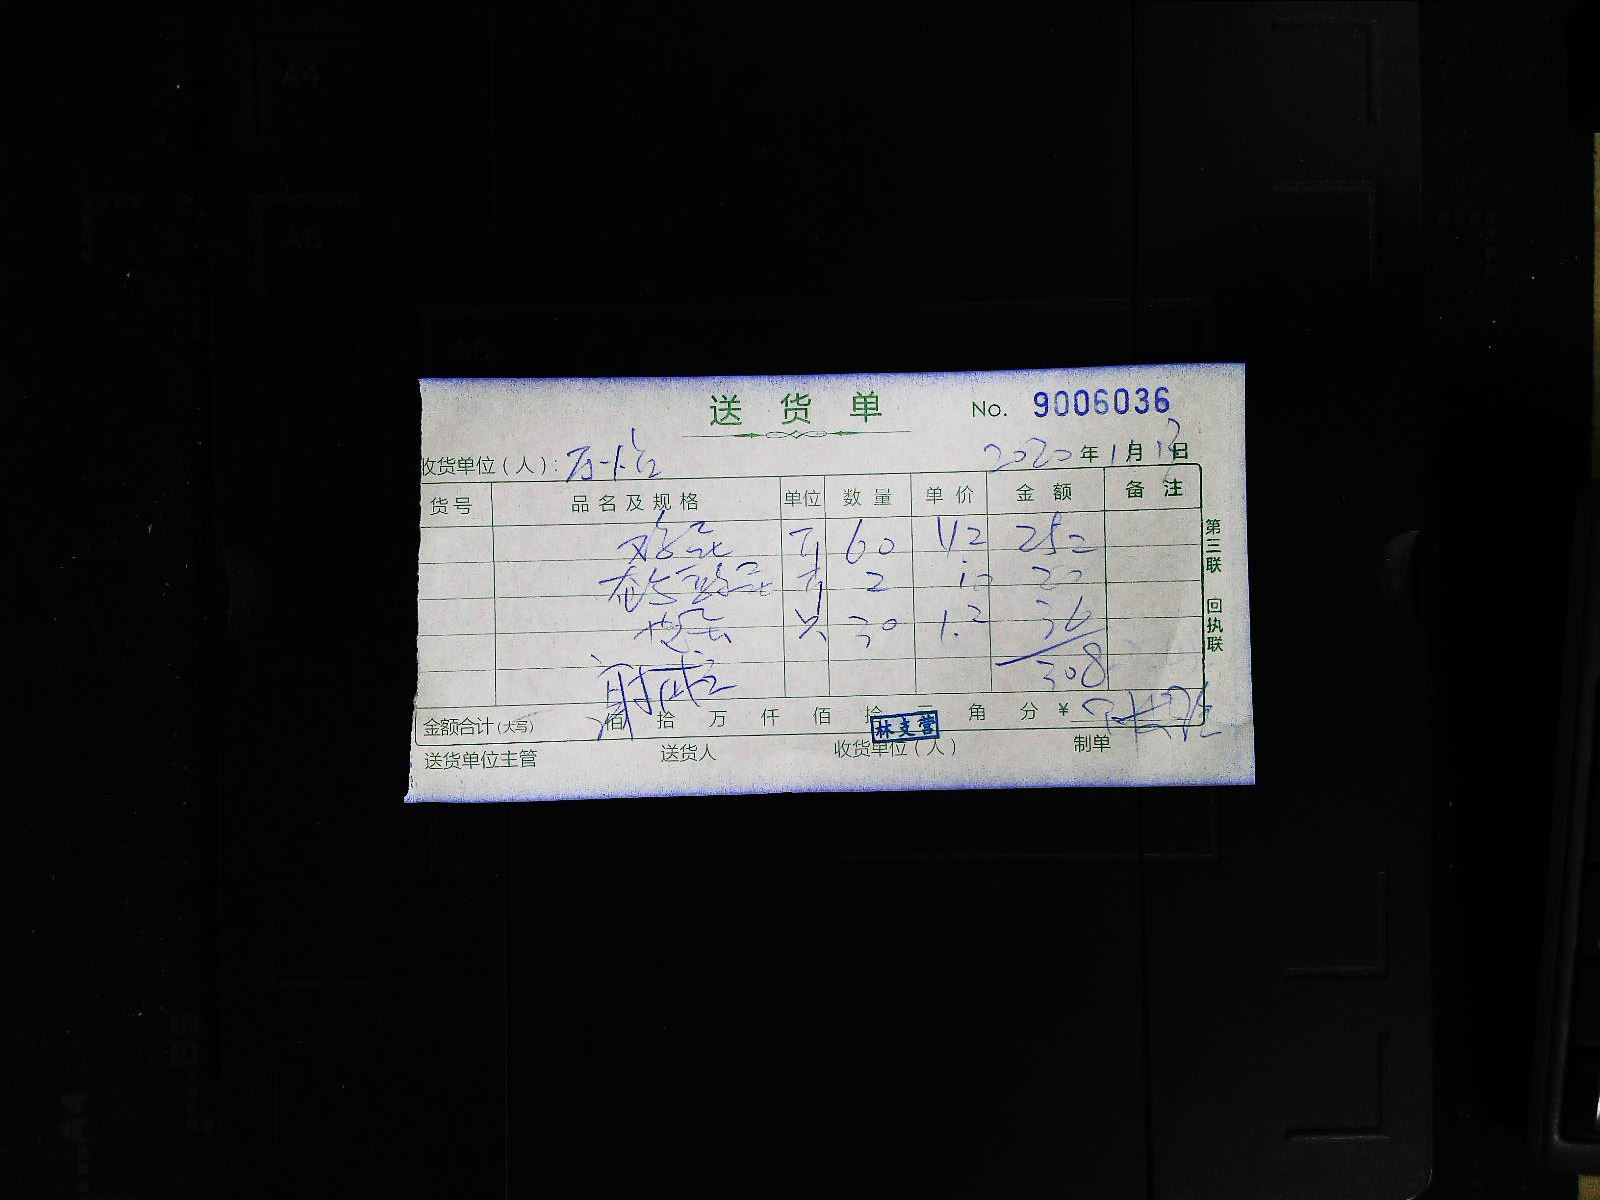 A4
A5
送货单 No. 9006036
收货单位(人): 2020年1月 日
货号 品名及规格 单位 数量 单价 金额 备注
鸡蛋 斤 60 4.2 252
2 10 20
只 30 1.2 36
308
金额合计(大写) 佰 拾 万 仟 佰 拾 元 角 分 ¥
林支营
送货单位主管 送货人 收货单位(人) 制单
第三联 回执联
B5
A4